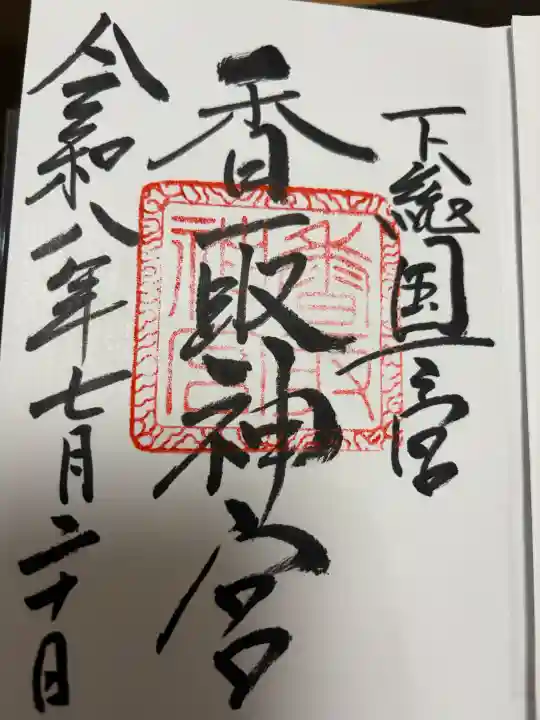 下総国一宮
香取神宮
令和八年七月二十日
香取神宮